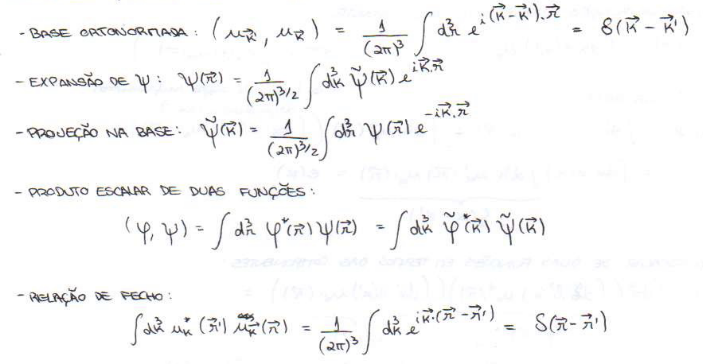 - BASE ORTONORMADA: (u_{\vec{k}'}, u_{\vec{k}}) = \frac{1}{(2π)^3} ∫ d^3r e^{i(\vec{k}-\vec{k}')·\vec{r}} = δ(\vec{k}-\vec{k}')
- EXPANSÃO DE ψ: ψ(\vec{r}) = \frac{1}{(2π)^{3/2}} ∫ d^3k \tilde{ψ}(\vec{k}) e^{i\vec{k}·\vec{r}}
- PROJEÇÃO NA BASE: \tilde{ψ}(\vec{k}) = \frac{1}{(2π)^{3/2}} ∫ d^3r ψ(\vec{r}) e^{-i\vec{k}·\vec{r}}
- PRODUTO ESCALAR DE DUAS FUNÇÕES:
(φ, ψ) = ∫ d^3r φ^*(\vec{r}) ψ(\vec{r}) = ∫ d^3k \tilde{φ}^*(\vec{k}) \tilde{ψ}(\vec{k})
- RELAÇÃO DE FECHO:
∫ d^3k u^*_{\vec{k}}(\vec{r}') u_{\vec{k}}(\vec{r}) = \frac{1}{(2π)^3} ∫ d^3k e^{i\vec{k}·(\vec{r}-\vec{r}')} = δ(\vec{r}-\vec{r}')